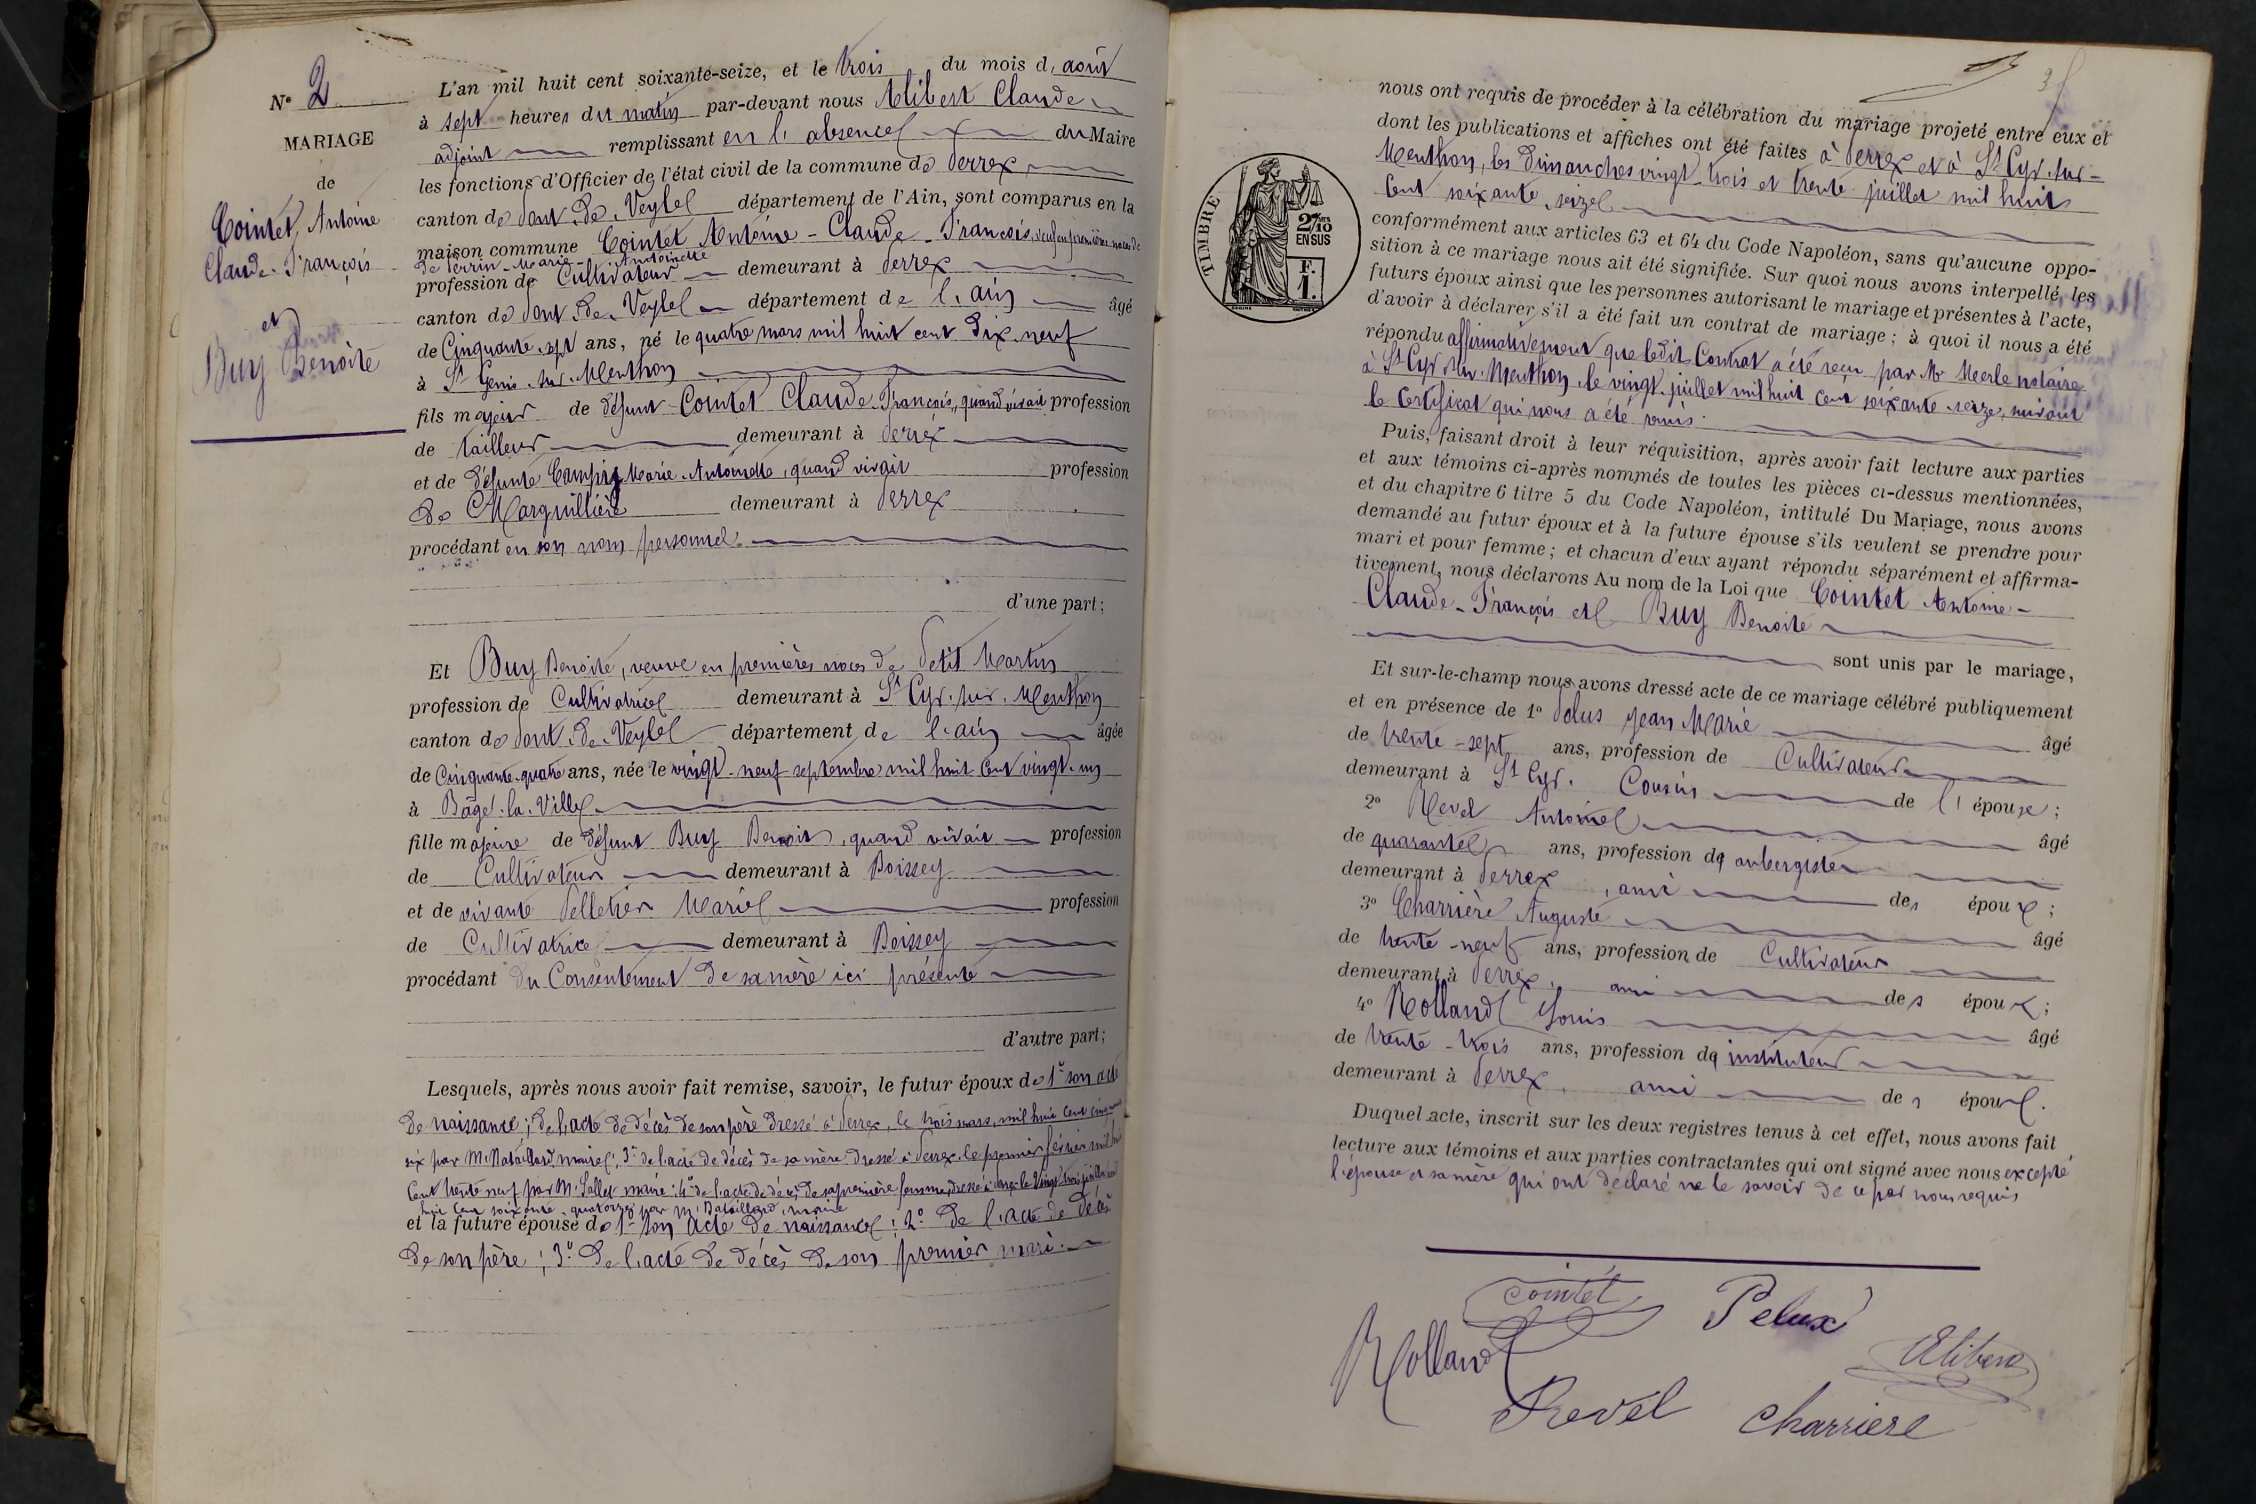 N° 2
MARIAGE
de
Cointet, Antoine
Claude-François
et
Buy Benoite
L'an mil huit cent soixante-seize, et le trois du mois d'août
à sept heures du matin par-devant nous Alibert Claude
adjoint remplissant en l'absence du Maire
les fonctions d'Officier de l'état civil de la commune de Perrex
canton de Pont-de-Veyle département de l'Ain, sont comparus en la
maison commune Cointet Antoine-Claude-François, veuf en premières noces de
de Perrin-Marie-Antoinette
profession de Cultivateur demeurant à Perrex
canton de Pont-de-Veyle département de l'ain âgé
de Cinquante-sept ans, né le quatre mars mil huit cent dix-neuf
à St Genis-sur-Menthon
fils majeur de défunt Cointet Claude-François, quand vivait profession
de tailleur demeurant à Perrex
et de défunte Marie-Antoinette, quand vivait profession
de Marguillière demeurant à Perrex
procédant en son nom personnel
d'une part;
Et Buy Benoite, veuve en premières noces de Petit Martin
profession de Cultivatrice demeurant à St Cyr-sur-Menthon
canton de Pont-de-Veyle département de l'ain âgée
de Cinquante-quatre ans, née le vingt-neuf septembre mil huit cent vingt-un
à Bâgé-la-Ville
fille majeure de défunt Buy Benoit, quand vivait profession
de Cultivateur demeurant à Boissey
et de vivante Pelletier Marie profession
de Cultivatrice demeurant à Boissey
procédant du Consentement de sa mère ici présente
d'autre part;
Lesquels, après nous avoir fait remise, savoir, le futur époux de 1° son acte
de naissance; de l'acte de décès de son père dressé à Perrex, le trois mars, mil huit cent cinquante
six par M. Bataillard, maire; 3° de l'acte de décès de sa mère dressé à Perrex le premier février mil huit
cent trente neuf par M. Sallet maire; 4° de l'acte de décès de sa première femme, dressé à Perrex le vingt trois juillet mil
huit cent soixante-quatorze par M. Bataillard, maire
et la future épouse de 1° son acte de naissance; 2° de l'acte de décès
de son père; 3° de l'acte de décès de son premier mari.
nous ont requis de procéder à la célébration du mariage projeté entre eux et
dont les publications et affiches ont été faites à Perrex et à St Cyr-sur-
Menthon, les dimanches vingt-trois et trente juillet mil huit
cent soixante-seize
TIMBRE
2/10
EN SUS
F.
1.
conformément aux articles 63 et 64 du Code Napoléon, sans qu'aucune oppo-
sition à ce mariage nous ait été signifiée. Sur quoi nous avons interpellé, les
futurs époux ainsi que les personnes autorisant le mariage et présentes à l'acte,
d'avoir à déclarer s'il a été fait un contrat de mariage; à quoi il nous a été
répondu affirmativement que ledit Contrat a été reçu par Me Merle notaire
à St Cyr-sur-Menthon le vingt juillet mil huit cent soixante-seize, suivant
le Certificat qui nous a été remis.
Puis, faisant droit à leur réquisition, après avoir fait lecture aux parties
et aux témoins ci-après nommés de toutes les pièces ci-dessus mentionnées,
et du chapitre 6 titre 5 du Code Napoléon, intitulé Du Mariage, nous avons
demandé au futur époux et à la future épouse s'ils veulent se prendre pour
mari et pour femme; et chacun d'eux ayant répondu séparément et affirma-
tivement, nous déclarons Au nom de la Loi que Cointet Antoine-
Claude-François et Buy Benoite
sont unis par le mariage,
Et sur-le-champ nous avons dressé acte de ce mariage célébré publiquement
et en présence de 1° Pelus Jean Marie âgé
de trente-sept ans, profession de Cultivateur
demeurant à St Cyr. Cousin de l'épouse;
2° Revel Antoine âgé
de quarante ans, profession d'aubergiste
demeurant à Perrex, ami des époux;
3° Charrière Auguste âgé
de trente-neuf ans, profession de Cultivateur
demeurant à Perrex, ami des époux;
4° Rolland Louis âgé
de trente-trois ans, profession d'instituteur
demeurant à Perrex, ami des époux.
Duquel acte, inscrit sur les deux registres tenus à cet effet, nous avons fait
lecture aux témoins et aux parties contractantes qui ont signé avec nous excepté
l'épouse et sa mère qui ont déclaré ne le savoir de ce par nous requis
Cointet Pelux
Rolland Alibert
Revel Charriere